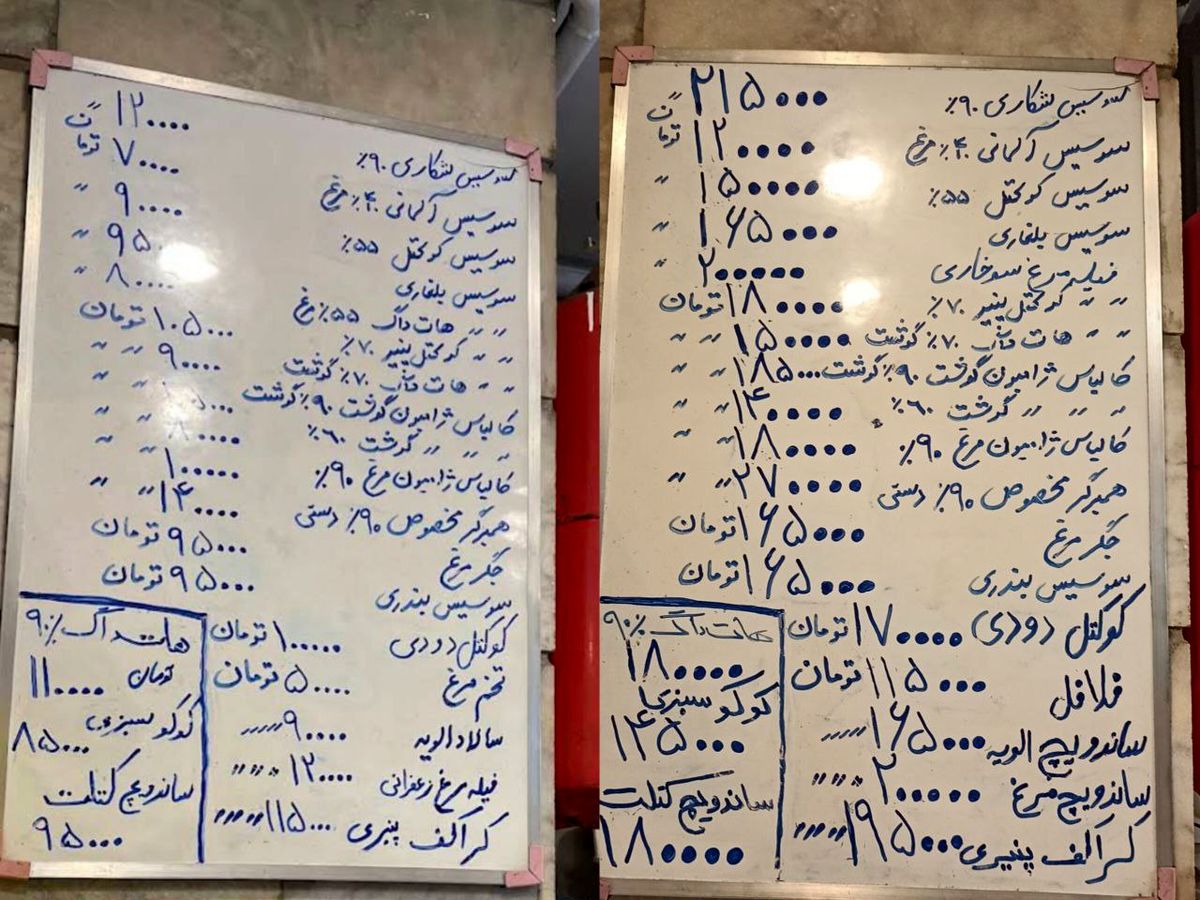 سوسیس شکاری ۹۰٪ ۱۲۰۰۰۰ تومان
سوسیس آلمانی ۴۰٪ مرغ ۷۰۰۰۰ "
سوسیس کوکتل ۵۵٪ ۹۰۰۰۰ "
سوسیس بلغاری ۹۵۰ "
" " هات داگ ۵۵٪ مرغ ۸۰۰۰۰
" " کوکتل پنیر ۷۰٪ ۱۰۵۰۰۰ تومان
" " هات داگ ۷۰٪ گوشت ۹۰۰۰۰ " "
کالباس ژامبون گوشت ۹۰٪ گوشت
" " " گوشت ۶۰٪ ۸۰۰۰۰ " "
کالباس ژامبون مرغ ۹۰٪ ۱۰۰۰۰۰ " "
همبرگر مخصوص ۹۰٪ دستی ۱۴۰۰۰۰ " "
جگر مرغ ۹۵۰۰۰ تومان
سوسیس بندری ۹۵۰۰۰ تومان
کوکتل دودی ۱۰۰۰۰۰ تومان
تخم مرغ ۵۰۰۰۰ تومان
سالاد الویه ۹۰۰۰۰ """
فیله مرغ زعفرانی ۱۲۰۰۰۰ """
کراکف پنیری ۱۱۵۰۰۰ """
هات داگ ۹۰٪
۱۱۰۰۰۰ تومان
کوکو سبزی
۸۵۰۰۰
ساندویچ کتلت
۹۵۰۰۰
سوسیس شکاری ۹۰٪ ۲۱۵۰۰۰ تومان
سوسیس آلمانی ۴۰٪ مرغ ۱۲۰۰۰۰ تومان
سوسیس کوکتل ۵۵٪ ۱۵۰۰۰۰ "
سوسیس بلغاری ۱۶۵۰۰۰ "
فیله مرغ سوخاری ۲۰۰۰۰۰ "
" " کوکتل پنیر ۷۰٪ ۱۸۰۰۰۰ تومان
" " هات داگ ۷۰٪ گوشت ۱۵۰۰۰۰ " "
کالباس ژامبون گوشت ۹۰٪ گوشت ۱۸۵۰۰۰ " "
" " " گوشت ۶۰٪ ۱۴۰۰۰۰ " "
کالباس ژامبون مرغ ۹۰٪ ۱۸۰۰۰۰ " "
همبرگر مخصوص ۹۰٪ دستی ۲۷۰۰۰۰ " "
جگر مرغ ۱۶۵۰۰۰ تومان
سوسیس بندری ۱۶۵۰۰۰ تومان
کوکتل دودی ۱۷۰۰۰۰ تومان
فلافل ۱۱۵۰۰۰ تومان
ساندویچ الویه ۱۶۵۰۰۰ """
ساندویچ مرغ ۲۰۰۰۰۰ """
کراکف پنیری ۱۹۵۰۰۰ """
هات داگ ۹۰٪
۱۸۰۰۰۰
کوکو سبزی
۱۴۵۰۰۰
ساندویچ کتلت
۱۸۰۰۰۰